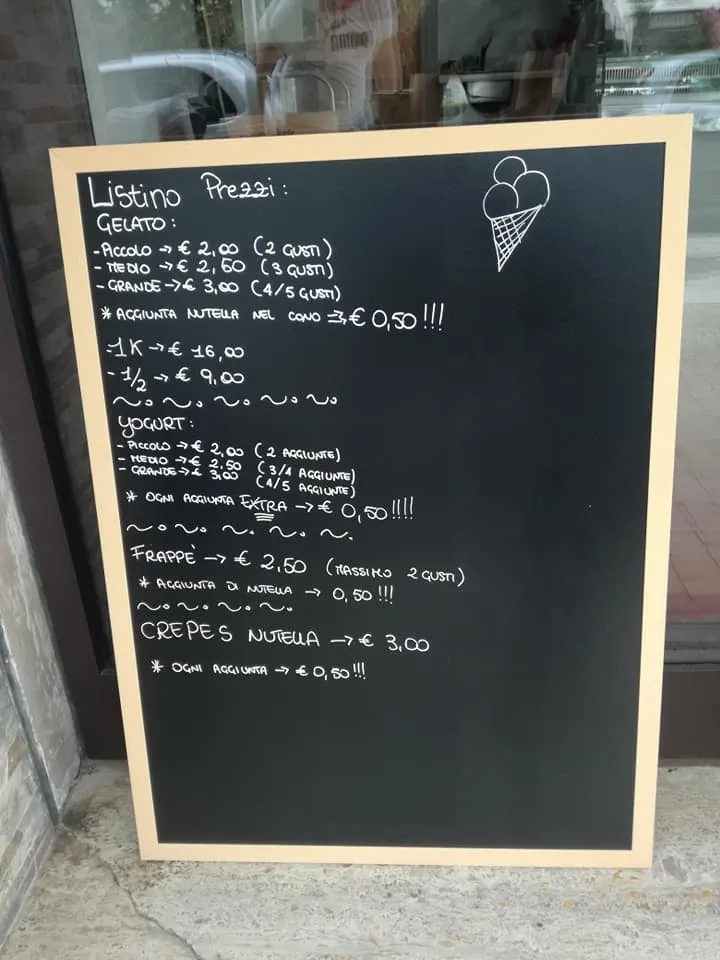 Listino Prezzi:
GELATO:
- PICCOLO → € 2,00 (2 GUSTI)
- MEDIO → € 2,50 (3 GUSTI)
- GRANDE → € 3,00 (4/5 GUSTI)
* AGGIUNTA NUTELLA NEL CONO → € 0,50!!!
- 1K → € 16,00
- 1/2 → € 9,00
YOGURT:
- PICCOLO → € 2,00 (2 AGGIUNTE)
- MEDIO → € 2,50 (3/4 AGGIUNTE)
- GRANDE → € 3,00 (4/5 AGGIUNTE)
* OGNI AGGIUNTA EXTRA → € 0,50!!!!
FRAPPE' → € 2,50 (MASSIMO 2 GUSTI)
* AGGIUNTA DI NUTELLA → 0,50!!!
CREPES NUTELLA → € 3,00
* OGNI AGGIUNTA → € 0,50!!!